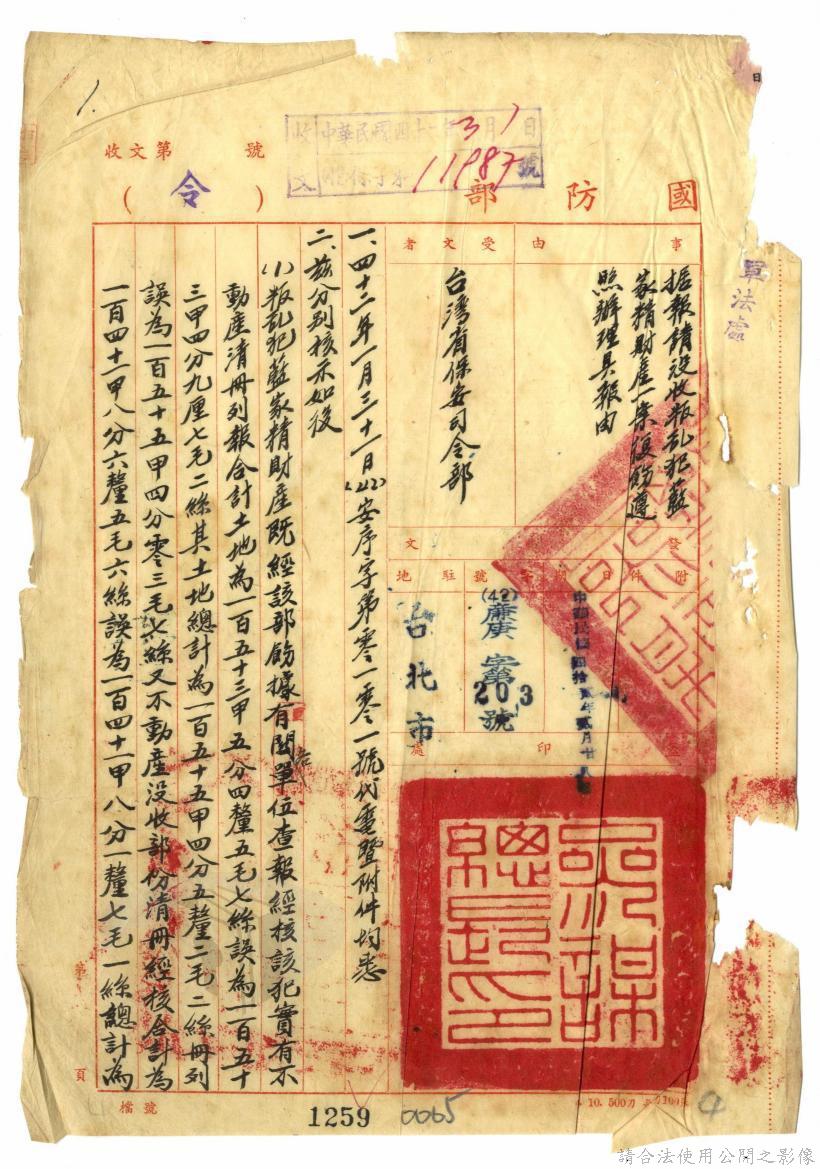 1.
收文第 號
收文
中華民國四十二年3月1日
11987號
國防部
(令)
軍法處
事由
據報請沒收叛亂犯藍
家精財產一案復飭遵
照辦理具報由
受文者
台灣省保安司令部
發文
附件
日期
字號
駐地
中華民國四拾貳年貳月廿八日
(42)廉庚字第
203號
台北市
印處
參謀總長印
一、四十二年一月三十一日(42)安序字第零一零一號代電暨附件均悉
二、茲分別核示如後
(1)叛亂犯藍家精財產既經該部飭據有關單位查報經核該犯實有不
動產清冊列報合計土地為一百五十三甲五分四釐五毛七絲誤為一百五十
三甲四分九厘七毛二絲其土地總計為一百五十五甲四分五釐二毛二絲冊列
誤為一百五十五甲四分零三毛七絲又不動產沒收部份清冊經核合計為
一百四十一甲八分六釐五毛六絲誤為一百四十一甲八分一釐七毛一絲總計為
第
頁
檔號
1259
0065
4
請合法使用公開之影像